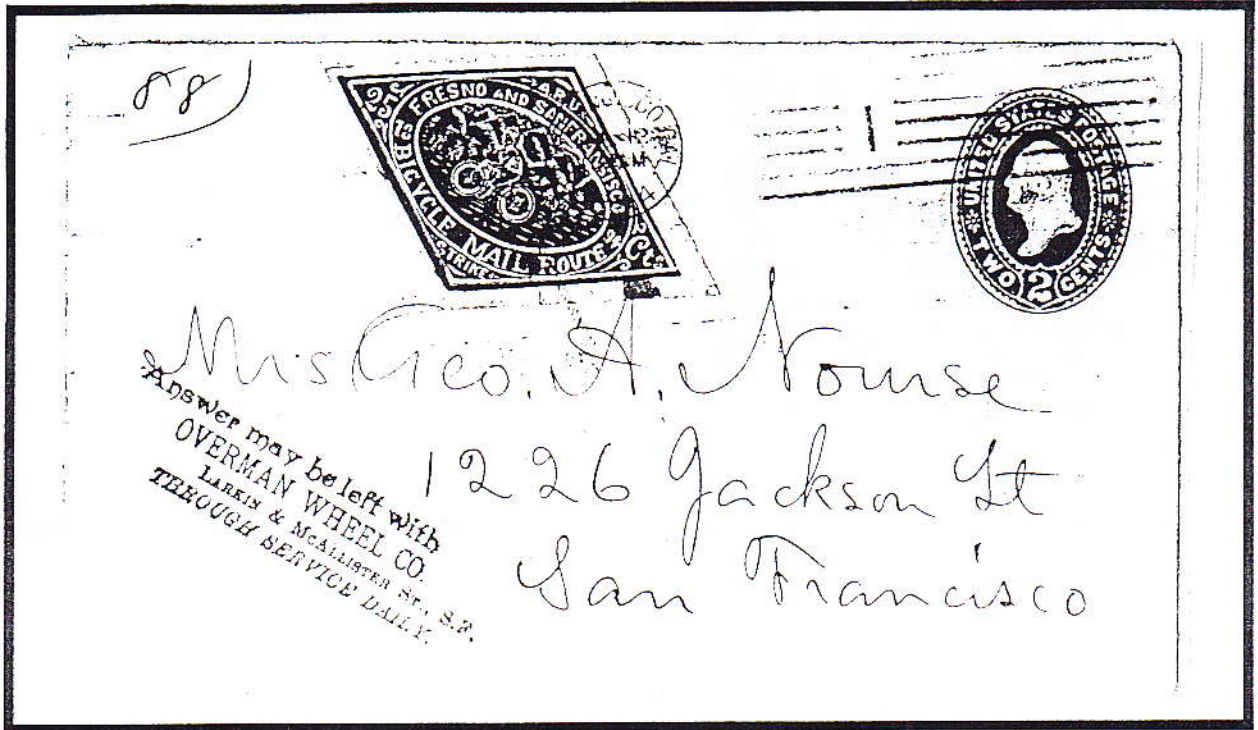 88
A.R.U.
FRESNO AND SAN FRANSISCO
BICYCLE MAIL ROUTE
STRIKE
25 Cts
UNITED STATES POSTAGE
TWO 2 CENTS
Mrs Geo. A. Nourse
1226 Jackson St
San Francisco
Answer may be left with
OVERMAN WHEEL CO.
LARKIN & McALLISTER ST., S.F.
THROUGH SERVICE DAILY.